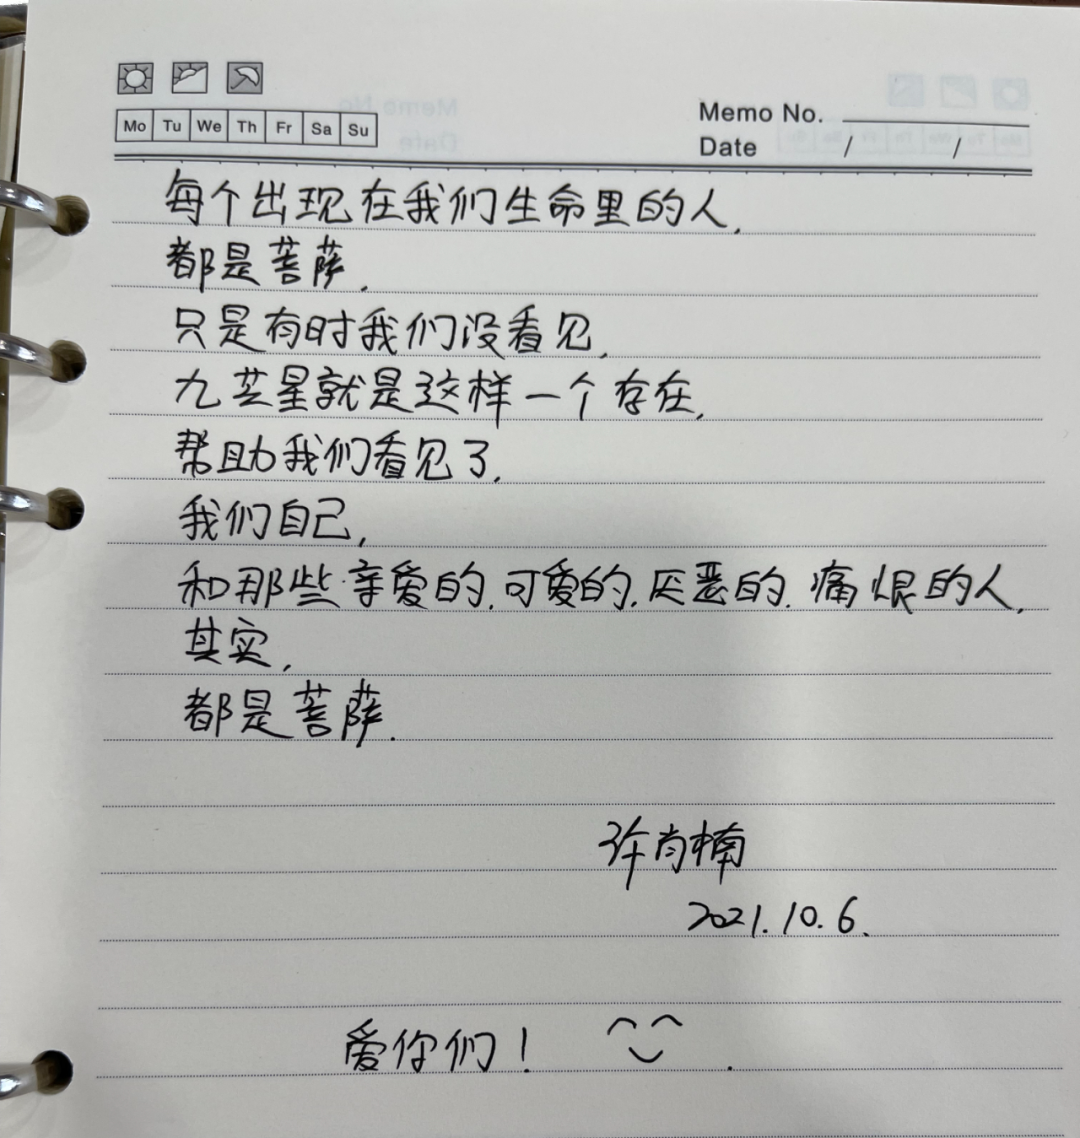 Mo Tu We Th Fr Sa Su
Memo No.
Date / /
每个出现在我们生命里的人,
都是菩萨,
只是有时我们没看见,
九芒星就是这样一个存在,
帮助我们看见了,
我们自己,
和那些亲爱的,可爱的,厌恶的,痛恨的人,
其实,
都是菩萨.
许肖楠
2021.10.6.
爱你们!